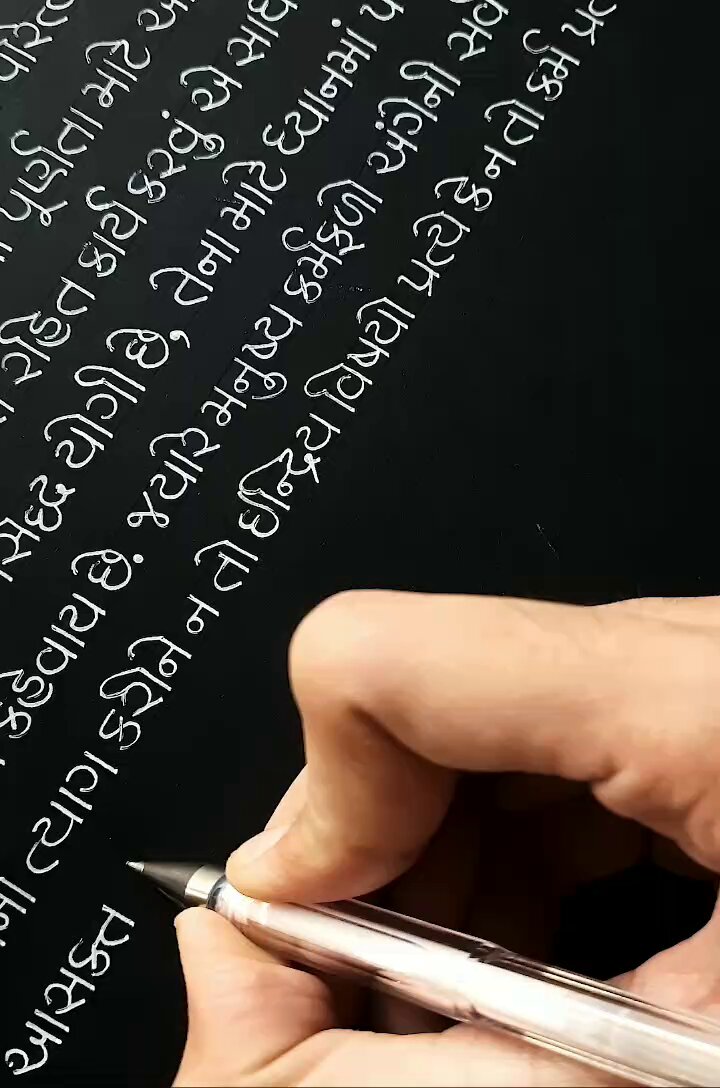 પૂર્ણતા માટે
રહિત કાર્ય કરવું એ
યોગી છે, તેના માટે ધ્યાનમાં
કહેવાય છે. જ્યારે મનુષ્ય કર્મફળો અંગેની
ત્યાગ કરીને ન તો ઇન્દ્રિય વિષયો પ્રત્યે કે ન તો કર્મ
આસક્ત